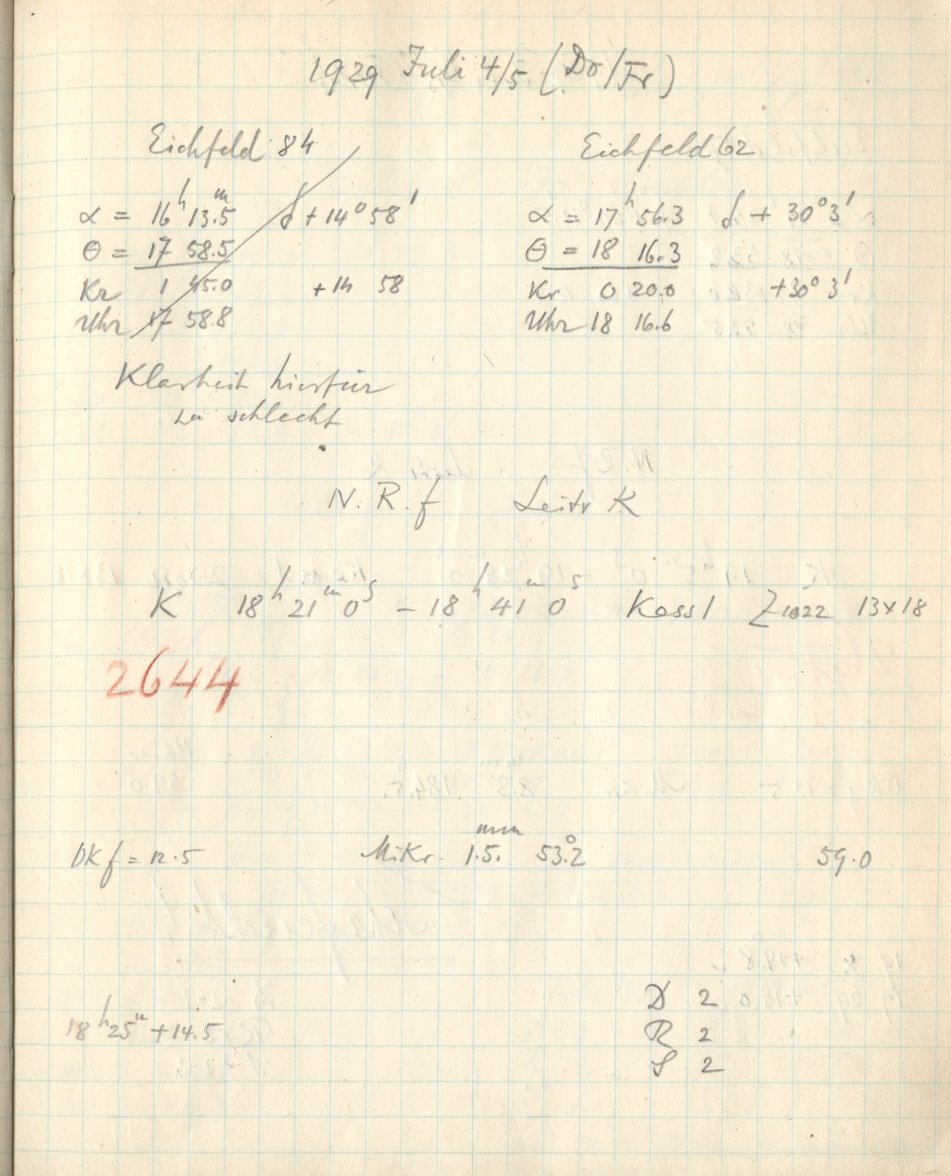 1929 Juli 4/5. (Do/Fr)
Eichfeld 84
α = 16ʰ 13.5ᵐ δ + 14° 58'
Θ = 17 58.5
Kr 1 45.0 + 14 58
Uhr 17 58.8
Klarheit hierfür
zu schlecht
Eichfeld 62
α = 17ʰ 56.3 δ + 30° 3'
Θ = 18 16.3
Kr 0 20.0 + 30° 3'
Uhr 18 16.6
N. R. f Leitr K
K 18ʰ 21ᵐ 0ˢ – 18ʰ 41ᵐ 0ˢ Kass 1 Z 1022 13x18
2644
OKf = 12.5 Mikr. 1.5 mm 53.°2 59.0
D 2
18ʰ 25ᵐ + 14.5
R 2
S 2